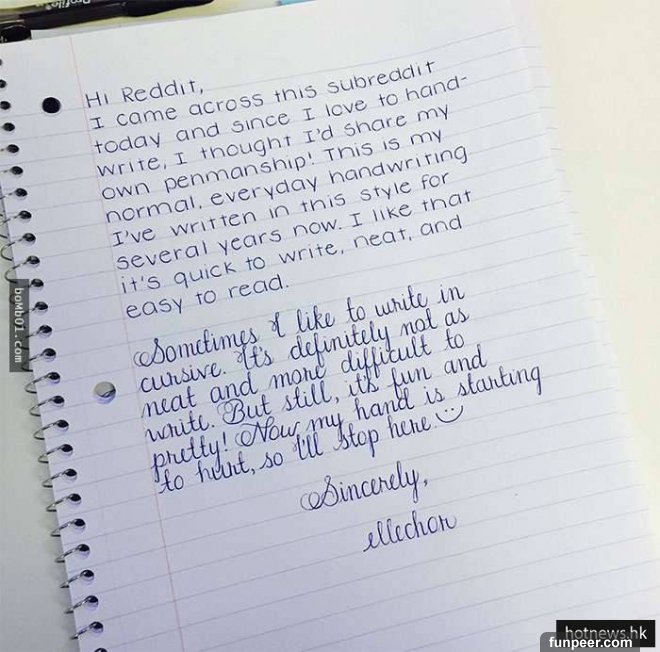 Hi Reddit,
I came across this subreddit
today and since I love to hand-
write, I thought I'd share my
own penmanship! This is my
normal, everyday handwriting
I've written in this style for
several years now. I like that
it's quick to write, neat, and
easy to read.
Sometimes I like to write in
cursive. It's definitely not as
neat and more difficult to
write. But still, it's fun and
pretty! Now my hand is starting
to hurt, so I'll stop here.
Sincerely,
ellechor
bomb01.com
hotnews.hk
funpeer.com